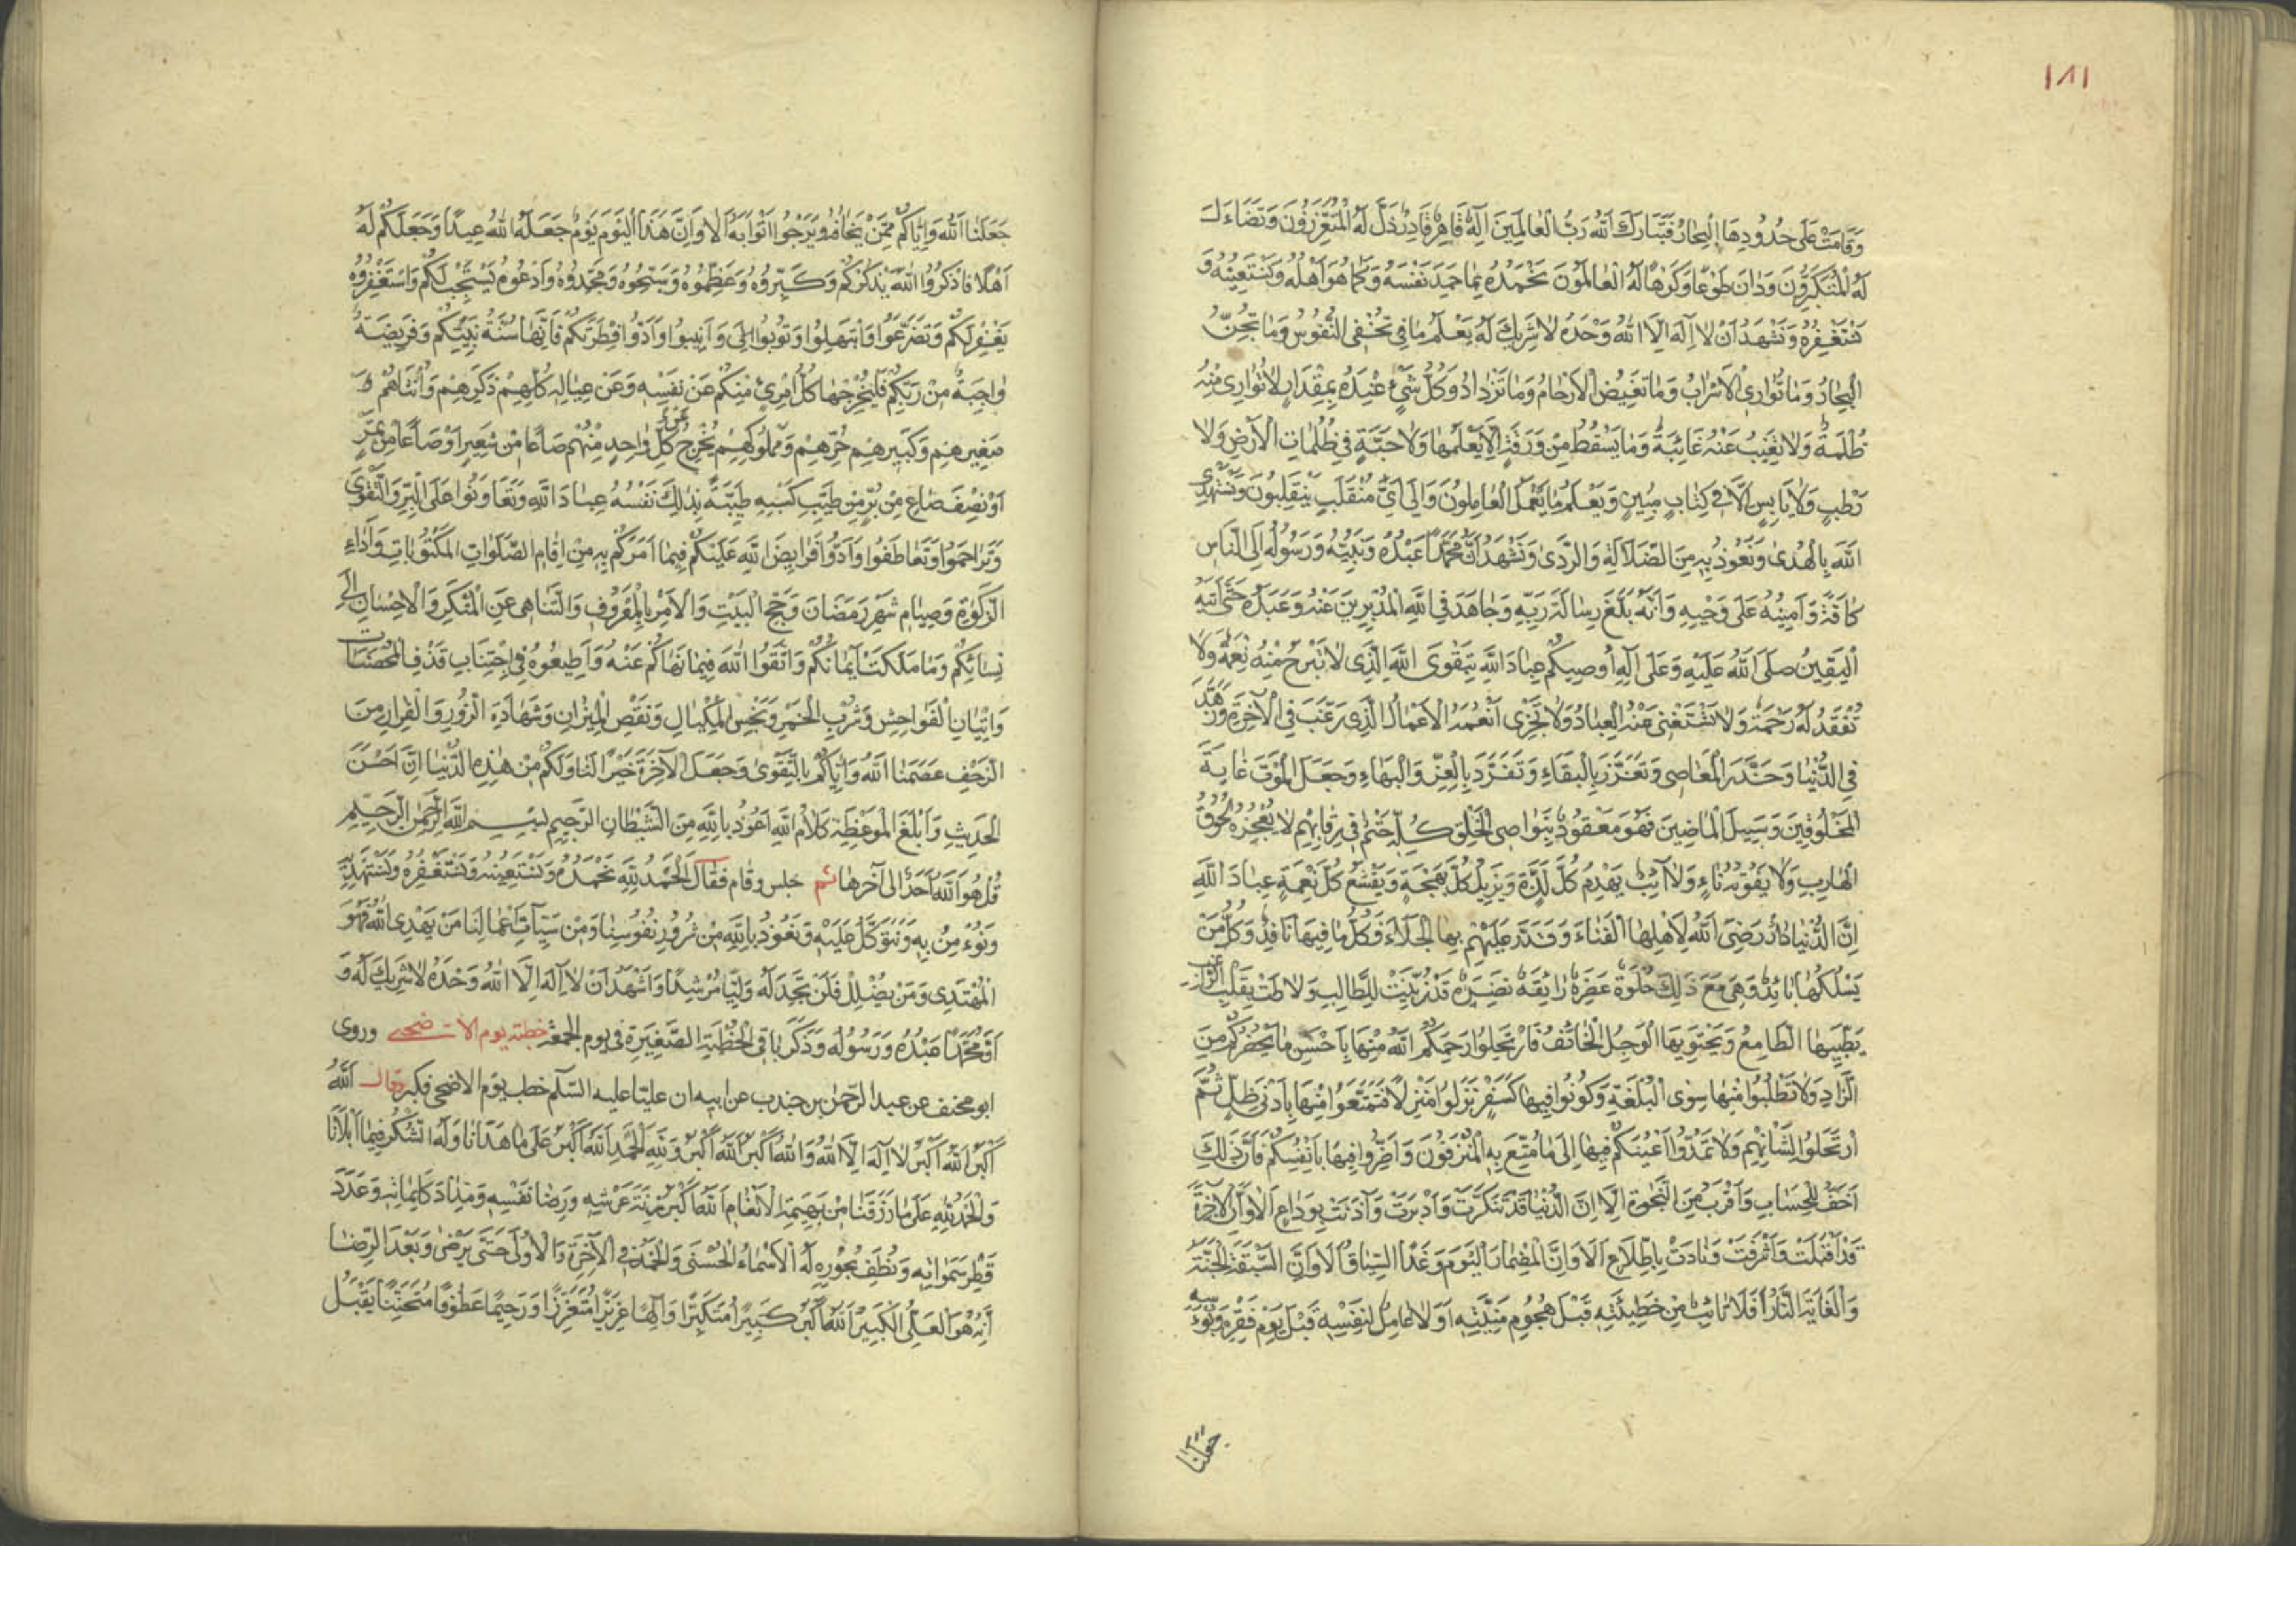 ١٨١
وَقَامَتْ عَلَى حُدُودِهَا الْبِحَارُ فَتَبَارَكَ اللهُ رَبُّ الْعَالَمِينَ اِلَهٌ قَاهِرٌ قَادِرٌ ذَلَّ لَهُ الْمُتَعَزِّزُونَ وَتَضَاءَلَ
لَهُ الْمُتَكَبِّرُونَ وَدَانَ طَوْعًا وَكَرْهًا لَهُ الْعَالَمُونَ نَحْمَدُهُ بِمَا حَمِدَ نَفْسَهُ وَكَمَا هُوَ اَهْلُهُ وَنَسْتَعِينُهُ وَ
نَسْتَغْفِرُهُ وَنَشْهَدُ اَنْ لَا اِلَهَ اِلَّا اللهُ وَحْدَهُ لَا شَرِيكَ لَهُ يَعْلَمُ مَا فِى تُخْفِى النُّفُوسُ وَمَا تَجُنُّ
الْبِحَارُ وَمَا تُوَارِىْ الْاَسْرَابُ وَمَا تَغِيضُ الْاَرْحَامُ وَمَا تَزْدَادُ وَكُلُّ شَيْءٍ عِنْدَهُ بِمِقْدَارٍ لَا تُوَارِى مِنْهُ
ظُلْمَةٌ وَلَا تَغِيبُ عَنْهُ غَائِبَةٌ وَمَا يَسْقُطُ مِنْ وَرَقَةٍ اِلَّا يَعْلَمُهَا وَلَا حَبَّةٍ فِى ظُلُمَاتِ الْاَرْضِ وَلَا
رَطْبٍ وَلَا يَابِسٍ اِلَّا فِى كِتَابٍ مُبِينٍ وَيَعْلَمُ مَا يَعْمَلُ الْعَامِلُونَ وَاِلَى اَىِّ مُنْقَلَبٍ يَنْقَلِبُونَ وَنَسْتَهْدِى
اللهَ بِالْهُدَى وَنَعُوذُ بِهِ مِنَ الضَّلَالَةِ وَالرَّدَى وَنَشْهَدُ اَنَّ مُحَمَّدًا عَبْدُهُ وَنَبِيُّهُ وَرَسُولُهُ اِلَى النَّاسِ
كَافَّةً وَاَمِينُهُ عَلَى وَحْيِهِ وَاَنَّهُ بَلَّغَ رِسَالَةَ رَبِّهِ وَجَاهَدَ فِى اللهِ الْمُدْبِرِينَ عَنْهُ وَعَبَدَهُ حَتَّى اَتَيهُ
الْيَقِينُ صَلَّى اللهُ عَلَيْهِ وَعَلَى آلِهِ اُوصِيكُمْ عِبَادَ اللهِ بِتَقْوَى اللهِ الَّذِى لَا تَبْرَحُ مِنْهُ نِعْمَةٌ وَلَا
تُفْقَدُ لَهُ رَحْمَةٌ وَلَا يَسْتَغْنِى عَنْهُ الْعِبَادُ وَلَا تَجْزِى اَنْعُمَهُ الْاَعْمَالُ الَّذِى رَغَّبَ فِى الْآخِرَةِ وَزَهَّدَ
فِى الدُّنْيَا وَحَذَّرَ الْمَعَاصِى وَتَعَزَّزَ بِالْبَقَاءِ وَتَفَرَّدَ بِالْعِزِّ وَالْبَهَاءِ وَجَعَلَ الْمَوْتَ غَايَةَ
الْمَخْلُوقِينَ وَسَبِيلَ الْمَاضِينَ فَهُوَ مَعْقُودٌ بِنَوَاصِى الْخَلْقِ كُلِّهِ حَتْمٌ فِى رِقَابِهِمْ لَا يُعْجِزُهُ لُحُوقُ
الْهَارِبِ وَلَا يَفُوتُهُ نَاءٍ وَلَا آئِبٌ يَهْدِمُ كُلَّ لَذَّةٍ وَيُزِيلُ كُلَّ بَهْجَةٍ وَيَقْشَعُ كُلَّ نِعْمَةٍ عِبَادَ اللهِ
اِنَّ الدُّنْيَا دَارٌ رَضِىَ اللهُ لِاَهْلِهَا الْفَنَاءَ وَقَدَّرَ عَلَيْهِمْ بِهَا الْجَلَاءَ فَكُلُّ مَا فِيهَا نَافِدٌ وَكُلُّ مَنْ
يَسْلُكُهَا بَائِدٌ وَهِىَ مَعَ ذَلِكَ حُلْوَةٌ غَضِرَةٌ رَائِقَةٌ نَضِيرَةٌ قَدْ زُيِّنَتْ لِلطَّالِبِ وَلَاطَتْ بِقَلْبِ الرَّاغِبِ
يَطَّيِبُهَا الطَّامِعُ وَيَجْتَوِيهَا الْوَجِلُ الْخَائِفُ فَارْتَحِلُوا رَحِمَكُمُ اللهُ مِنْهَا بِاَحْسَنِ مَا يَحْضُرُكُمْ مِنَ
الزَّادِ وَلَا تَطْلُبُوا مِنْهَا سِوَى الْبُلْغَةِ وَكُونُوا فِيهَا كَسَفْرٍ نَزَلُوا مَنْزِلًا فَتَمَتَّعُوا مِنْهَا بِاَدْنَى ظِلٍّ ثُمَّ
ارْتَحَلُوا لِشَانِهِمْ وَلَا تَمُدُّوا اَعْيُنَكُمْ فِيهَا اِلَى مَا مُتِّعَ بِهِ الْمُتْرَفُونَ وَاَضِرُّوا فِيهَا بِاَنْفُسِكُمْ فَاِنَّ ذَلِكَ
اَخَفُّ لِلْحِسَابِ وَاَقْرَبُ مِنَ النَّجوةِ اَلَا اِنَّ الدُّنْيَا قَدْ تَنَكَّرَتْ وَاَدْبَرَتْ وَآذَنَتْ بِوَدَاعٍ اَلَا وَاِنَّ الْآخِرَةَ
قَدْ اَقْبَلَتْ وَاَشْرَفَتْ وَنَادَتْ بِاطِّلَاعٍ اَلَا وَاِنَّ الْمِضْمَارَ الْيَوْمَ وَغَدًا السِّبَاقُ اَلَا وَاِنَّ السَّبَقَةَ الْجَنَّةُ
وَالْغَايَةَ النَّارُ اَفَلَا تَائِبٌ مِنْ خَطِيئَتِهِ قَبْلَ هُجُومِ مَنِيَّتِهِ اَوَلَا عَامِلٌ لِنَفْسِهِ قَبْلَ يَوْمِ فَقْرِهِ وَبُؤْسِهِ
جَعَلَنَا
جَعَلَنَا اللهُ وَاِيَّاكُمْ مِمَّنْ يَخَافُهُ وَيَرْجُوا ثَوَابَهُ اَلَا وَاِنَّ هَذَا الْيَوْمَ يَوْمٌ جَعَلَهُ اللهُ عِيدًا وَجَعَلَكُمْ لَهُ
اَهْلًا فَاذْكُرُوا اللهَ يَذْكُرْكُمْ وَكَبِّرُوهُ وَعَظِّمُوهُ وَسَبِّحُوهُ وَمَجِّدُوهُ وَادْعُوهُ يَسْتَجِبْ لَكُمْ وَاسْتَغْفِرُوهُ
يَغْفِرْ لَكُمْ وَتَضَرَّعُوا وَابْتَهِلُوا وَتُوبُوا اِلَى وَاَنِيبُوا وَاَدُّوا فِطْرَتَكُمْ فَاِنَّهَا سُنَّةُ نَبِيِّكُمْ وَفَرِيضَةٌ
وَاجِبَةٌ مِنْ رَبِّكُمْ فَلْيُخْرِجْهَا كُلُّ امْرِئٍ مِنْكُمْ عَنْ نَفْسِهِ وَعَنْ عِيَالِهِ كُلِّهِمْ ذَكَرِهِمْ وَاُنْثَاهُمْ وَ
صَغِيرِهِمْ وَكَبِيرِهِمْ حُرِّهِمْ وَمَمْلُوكِهِمْ يُخْرِجُ عَنْ كُلِّ وَاحِدٍ مِنْهُمْ صَاعًا مِنْ شَعِيرٍ اَوْ صَاعًا مِنْ تَمْرٍ
اَوْ نِصْفَ صَاعٍ مِنْ بُرٍّ مِنْ طَيِّبِ كَسْبِهِ طَيِّبَةً بِذَلِكَ نَفْسُهُ عِبَادَ اللهِ وَتَعَاوَنُوا عَلَى الْبِرِّ وَالتَّقْوَى
وَتَرَاحَمُوا وَتَعَاطَفُوا وَاَدُّوا فَرَايِضَ اللهِ عَلَيْكُمْ فِيمَا اَمَرَكُمْ بِهِ مِنْ اِقَامِ الصَّلَوَاتِ الْمَكْتُوبَاتِ وَاَدَاءِ
الزَّكَوةِ وَصِيَامِ شَهْرِ رَمَضَانَ وَحَجِّ الْبَيْتِ وَالْاَمْرِ بِالْمَعْرُوفِ وَالتَّنَاهِى عَنِ الْمُنْكَرِ وَالْاِحْسَانِ اِلَى
نِسَائِكُمْ وَمَا مَلَكَتْ اَيْمَانُكُمْ وَاتَّقُوا اللهَ فِيمَا نَهَاكُمْ عَنْهُ وَاَطِيعُوهُ فِى اجْتِنَابِ قَذْفِ الْمُحْصَنَاتِ
وَاِتْيَانِ الْفَوَاحِشِ وَشُرْبِ الْخَمْرِ وَبَخْسِ الْمِكْيَالِ وَنَقْصِ الْمِيزَانِ وَشَهَادَةِ الزُّورِ وَالْفِرَارِ مِنَ
الزَّحْفِ عَصَمَنَا اللهُ وَاِيَّاكُمْ بِالتَّقْوَى وَجَعَلَ الْآخِرَةَ خَيْرًا لَنَا وَلَكُمْ مِنْ هَذِهِ الدُّنْيَا اِنَّ اَحْسَنَ
الْحَدِيثِ وَاَبْلَغَ الْمَوْعِظَةِ كَلَامُ اللهِ اَعُوذُ بِاللهِ مِنَ الشَّيْطَانِ الرَّجِيمِ بِسْمِ اللهِ الرَّحْمَنِ الرَّحِيمِ
قُلْ هُوَ اللهُ اَحَدٌ اِلَى آخِرِهَا ثم جلس وقام فقال الْحَمْدُ لِلهِ نَحْمَدُهُ وَنَسْتَعِينُهُ وَنَسْتَغْفِرُهُ وَنَسْتَهْدِيهِ
وَنُؤْمِنُ بِهِ وَنَتَوَكَّلُ عَلَيْهِ وَنَعُوذُ بِاللهِ مِنْ شُرُورِ نُفُوسِنَا وَمِنْ سَيِّآتِ اَعْمَالِنَا مَنْ يَهْدِى اللهُ فَهُوَ
الْمُهْتَدِى وَمَنْ يُضْلِلْ فَلَنْ تَجِدَ لَهُ وَلِيًّا مُرْشِدًا وَاَشْهَدُ اَنْ لَا اِلَهَ اِلَّا اللهُ وَحْدَهُ لَا شَرِيكَ لَهُ وَ
اَنَّ مُحَمَّدًا عَبْدُهُ وَرَسُولُهُ وَذَكَرَ بَاقِى الْخُطْبَةِ الصَّغِيرَةِ فى يوم الجمعة خطبة يوم الاضحى وروى
ابو مخنف عن عبد الرّحمٰن بن جندب عن ابيه ان عليّا عليه السّلم خطب يوم الاضحى فكبر وقال اَللهُ
اَكْبَرُ اللهُ اَكْبَرُ لَا اِلَهَ اِلَّا اللهُ وَاللهُ اَكْبَرُ اللهُ اَكْبَرُ وَلِلهِ الْحَمْدُ اللهُ اَكْبَرُ عَلَى مَا هَدَانَا وَلَهُ الشُّكْرُ فِيمَا اَبْلَانَا
وَالْحَمْدُ لِلهِ عَلَى مَا رَزَقَنَا مِنْ بَهِيمَةِ الْاَنْعَامِ اَللهُ اَكْبَرُ زِنَةَ عَرْشِهِ وَرِضَا نَفْسِهِ وَمِدَادَ كَلِمَاتِهِ وَعَدَدَ
قَطْرِ سَمَوَاتِهِ وَنُطَفِ بُحُورِهِ لَهُ الْاَسْمَاءُ الْحُسْنَى وَالْحَمْدُ فِى الْآخِرَةِ وَالْاُولَى حَتَّى يَرْضَى وَبَعْدَ الرِّضَا
اِنَّهُ هُوَ الْعَلِىُّ الْكَبِيرُ اللهُ اَكْبَرُ كَبِيرًا مُتَكَبِّرًا وَاِلَهًا عَزِيزًا مُتَعَزِّزًا وَرَحِيمًا عَطُوفًا مُتَحَنِّنًا يَقْبَلُ